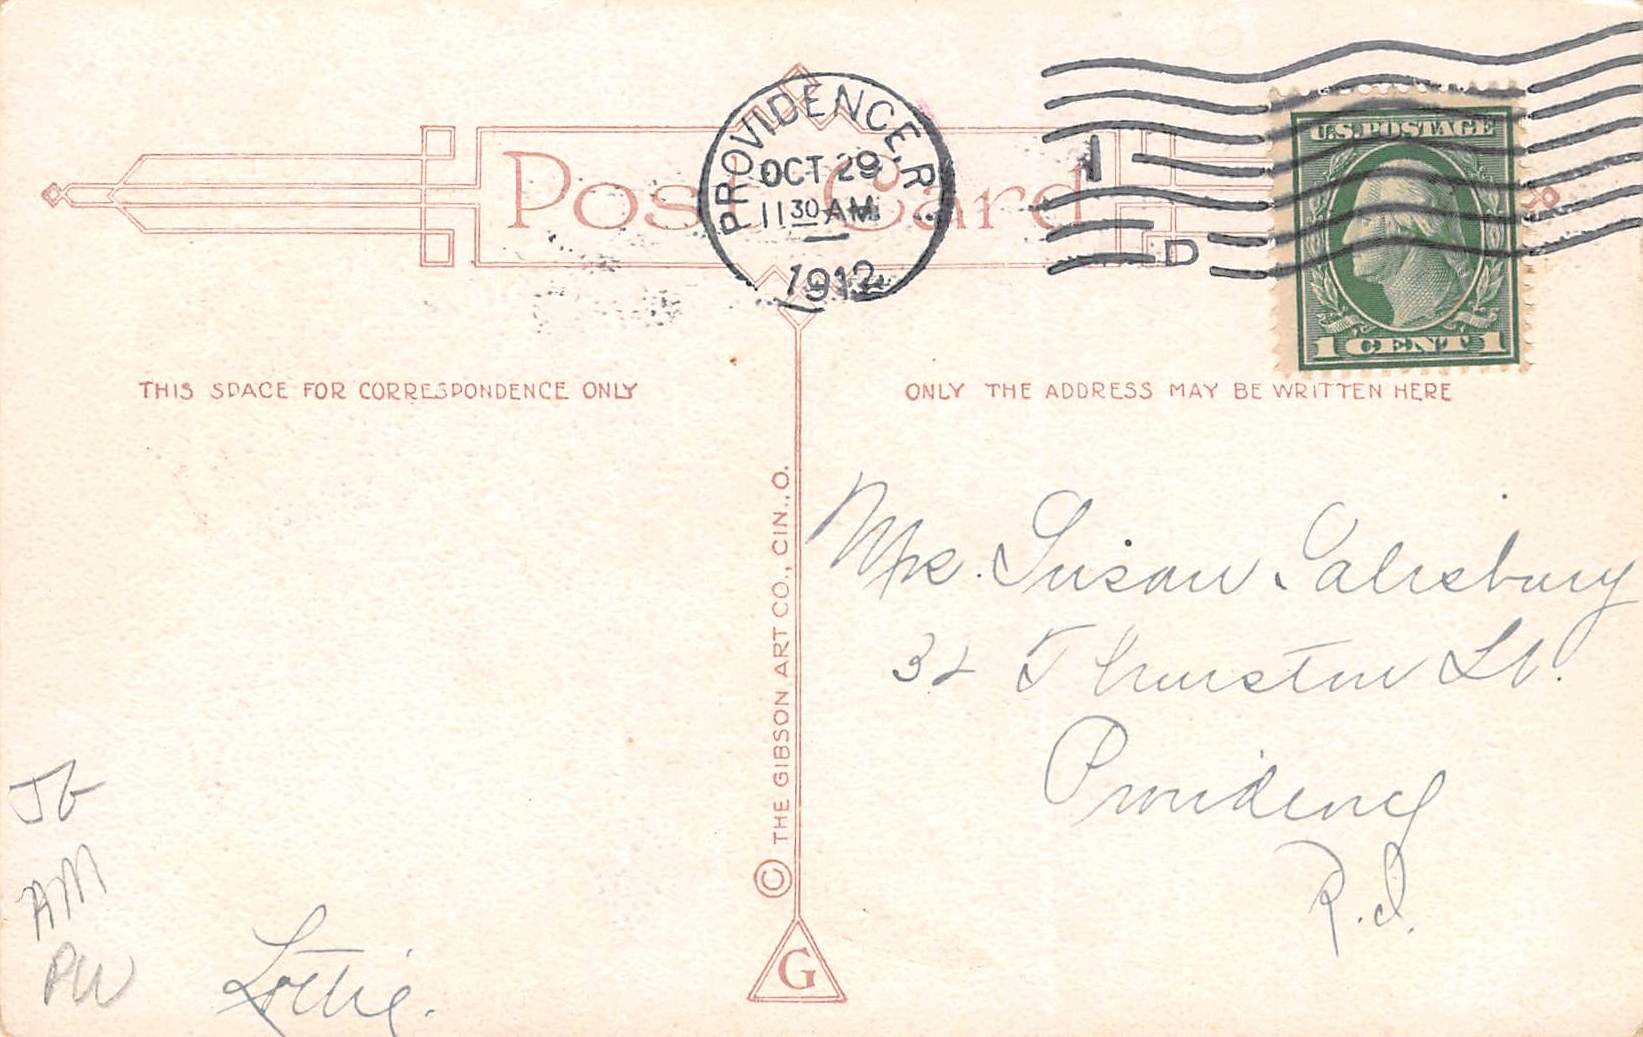 Post Card
PROVIDENCE, R.
OCT 29
11 30 AM
1912
1
D
U.S. POSTAGE
1 CENT 1
THIS SPACE FOR CORRESPONDENCE ONLY
ONLY THE ADDRESS MAY BE WRITTEN HERE
© THE GIBSON ART CO., CIN., O.
G
Mrs. Susan Salisbury
32 Thurston St.
Providence
R.I.
AM
PW
Lottie.